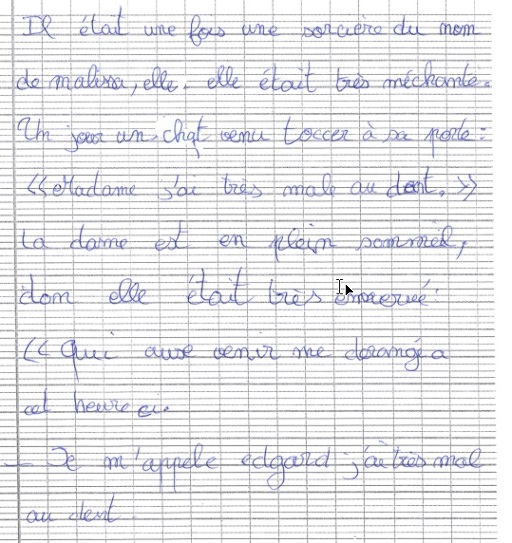 Il était une fois une sorcière du nom
de malissa, elle, elle était très méchante.
Un jour un chat venu toccer à sa porte :
<< Madame j'ai très male au dent. >>
La dame est en plein sommél,
dom elle était très énnervé :
<< Qui ause venir me derangé a
cet heure ci.
- Je m'appele edgard j'ai très mal
au dent.